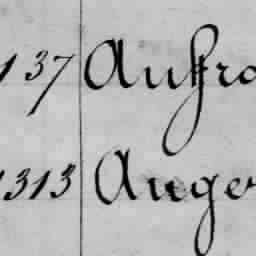 137 Aufra
1313 Auger